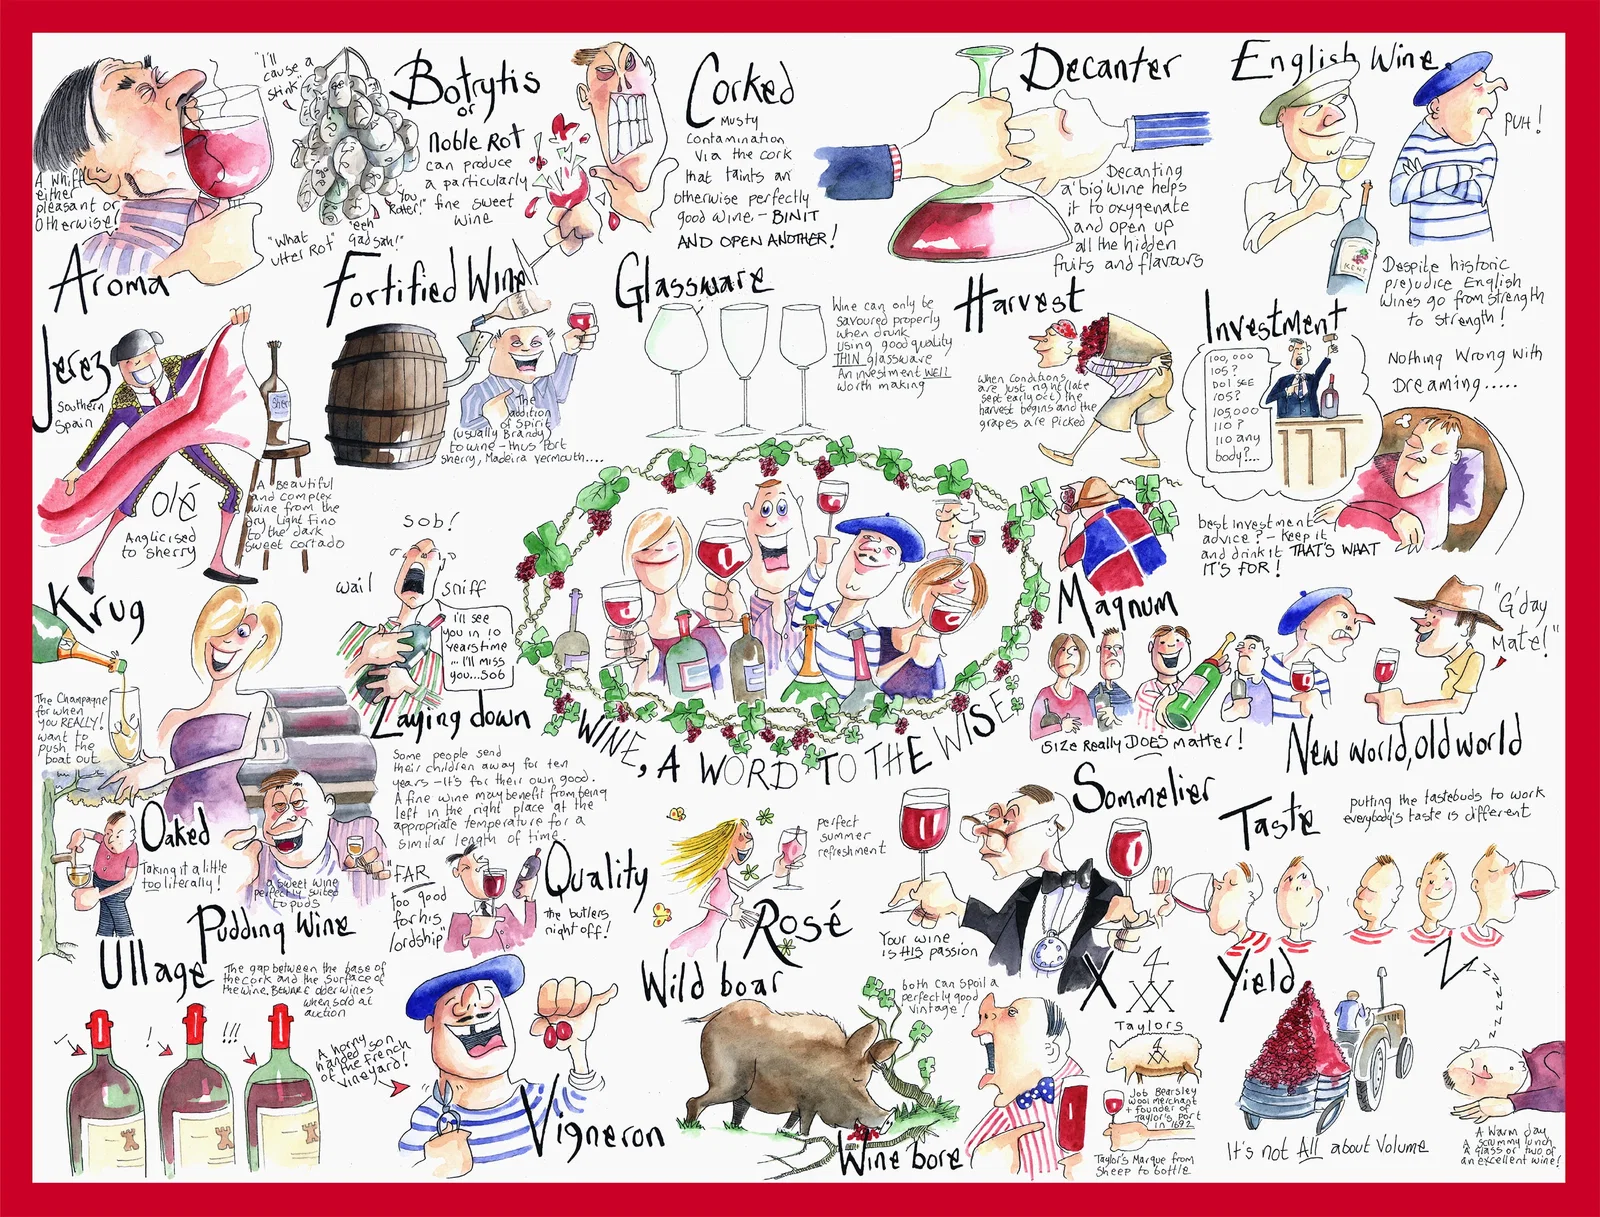 "I'll
cause a
stink"
"What
utter Rot"
"eeh
Gadsah!"
"You
Rotter!"
A whiff
either
pleasant or
otherwise!
Aroma
Botrytis
or
Noble Rot
can produce
a particularly
fine sweet
wine
Corked
Musty
Contamination
Via the cork
that taints an
otherwise perfectly
good wine - BIN IT
AND OPEN ANOTHER!
Decanter
Decanting
a 'big' wine helps
it to oxygenate
and open up
all the hidden
fruits and flavours
English Wine
PUH!
KENT
Despite historic
prejudice English
Wines go from strength
to strength!
Fortified Wine
The
addition
of Spirit
(usually Brandy)
to wine - thus Port
sherry, Madeira vermouth....
Glassware
Wine can only be
savoured properly
when drunk
using good quality
THIN glassware
An investment WELL
worth making
Harvest
When Conditions
are just right (late
sept early oct) the
harvest begins and the
grapes are picked
Investment
100,000
105?
Do I see
105?
105,000
110?
110 any
body?...
Nothing Wrong with
Dreaming.....
best investment
advice? - Keep it
and drink it THAT'S WHAT
IT'S FOR!
Jerez
Southern
Spain
Sher
Olé
Anglicised
to sherry
A Beautiful
and complex
wine from the
dry light Fino
to the dark
sweet cortado
Krug
The Champagne
for when
you REALLY!
want to
push the
boat out
sob!
wail
sniff
I'll see
you in 10
years time
... I'll miss
you...sob
Laying down
Some people send
their children away for ten
years - it's for their own good.
A fine wine may benefit from being
left in the right place at the
appropriate temperature for a
similar length of time.
WINE, A WORD TO THE WISE
Magnum
Size Really DOES matter!
"G'day
Mate!"
New world, Old world
Oaked
Taking it a little
too literally!
a sweet wine
perfectly suited
to puds
Pudding Wine
"FAR
too good
for his
lordship"
Quality
The butlers
night off!
perfect
summer
refreshment
Rosé
Sommelier
Your wine
is HIS passion
Taste
putting the tastebuds to work
everybody's taste is different
Ullage
The gap between the base of
the cork and the surface of
the wine. Beware older wines
when sold at
auction
!
!!!
A horny
handed son
of the French
vineyard!
Vigneron
Wild boar
both can spoil a
perfectly good
vintage!
Wine bore
X
4
XX
Taylors
Job Bearsley
wool merchant
+ founder of
Taylor's Port
in 1692
Taylor's Marque from
sheep to bottle
Yield
It's not All about Volume
Z
z z z z z z
A warm day
a scrummy lunch
a glass or two of
an excellent wine!